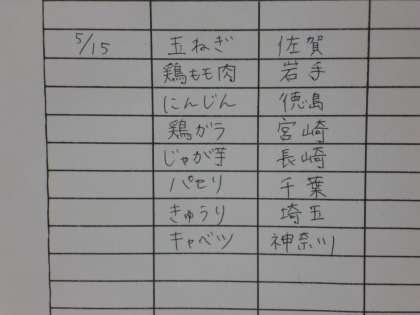 5/15 玉ねぎ 佐賀
鶏もも肉 岩手
にんじん 徳島
鶏ガラ 宮崎
じゃが芋 長崎
パセリ 千葉
きゅうり 埼玉
キャベツ 神奈川